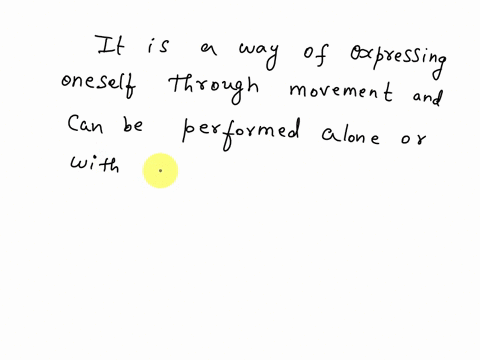 It is a way of expressing
oneself through movement and
Can be performed alone or
with